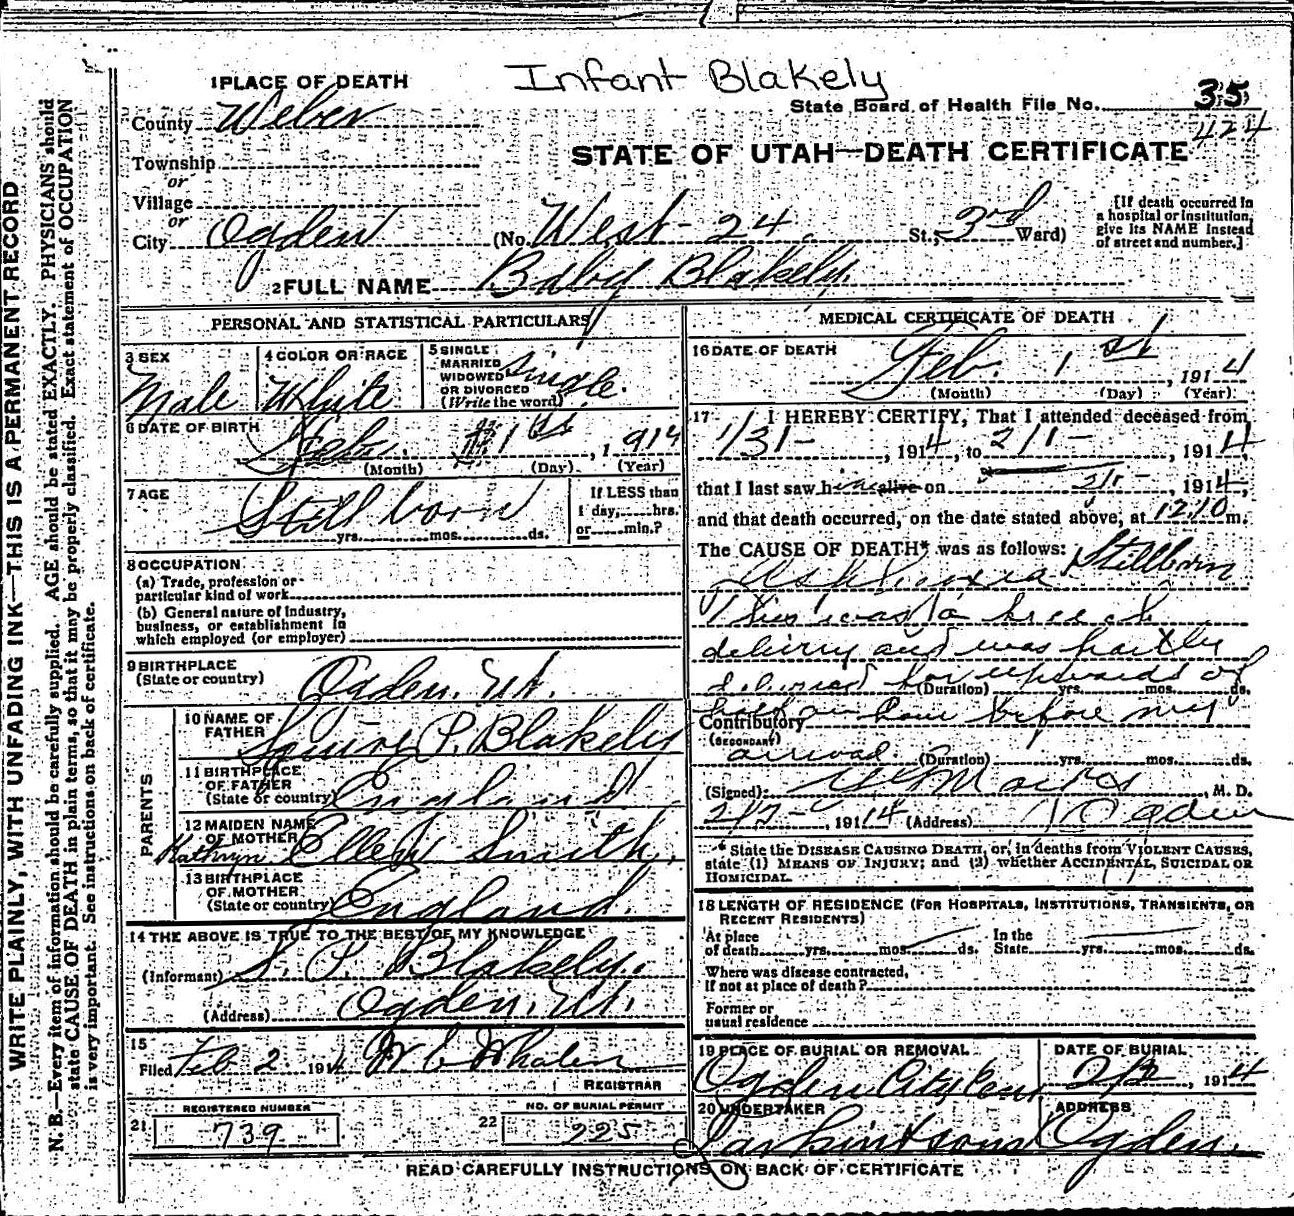 Infant Blakely
1 PLACE OF DEATH
State Board of Health File No. 35
424
County Weber
STATE OF UTAH—DEATH CERTIFICATE
Township
or
Village
or
City Ogden (No. West - 24 St.; 3rd Ward)
[If death occurred in
a hospital or institution,
give its NAME instead
of street and number.]
2 FULL NAME Baby Blakely.
PERSONAL AND STATISTICAL PARTICULARS
3 SEX
Male
4 COLOR OR RACE
White
5 SINGLE
MARRIED
WIDOWED
OR DIVORCED
(Write the word)
Single.
6 DATE OF BIRTH
Feb. 1st, 1914
(Month) (Day) (Year)
7 AGE
Still born
yrs. mos. ds.
If LESS than
1 day, hrs.
or min.?
8 OCCUPATION
(a) Trade, profession or
particular kind of work
(b) General nature of industry,
business, or establishment in
which employed (or employer)
9 BIRTHPLACE
(State or country)
Ogden. Ut.
PARENTS
10 NAME OF
FATHER
Squire P. Blakely
11 BIRTHPLACE
OF FATHER
(State or country)
England
12 MAIDEN NAME
OF MOTHER
Kathryn Ellen Smith.
13 BIRTHPLACE
OF MOTHER
(State or country)
England
14 THE ABOVE IS TRUE TO THE BEST OF MY KNOWLEDGE
(Informant) S. P. Blakely.
(Address) Ogden, Ut.
15
Filed Feb 2. 1914 W C Whalen
REGISTRAR
REGISTERED NUMBER
21 739
NO. OF BURIAL PERMIT
22 225
MEDICAL CERTIFICATE OF DEATH
16 DATE OF DEATH
Feb. 1st, 1914
(Month) (Day) (Year)
17 I HEREBY CERTIFY, That I attended deceased from
1/31-, 1914, to 2/1-, 1914,
that I last saw him alive on 2/1-, 1914,
and that death occurred, on the date stated above, at 12:10 m.
The CAUSE OF DEATH* was as follows: Stillborn
Asphyxia
This was a breech
delivery and was partly
delivered for upwards of
(Duration) yrs. mos. ds.
half an hour before my
Contributory
(SECONDARY)
arrival
(Duration) yrs. mos. ds.
(Signed) M. D.
2/2-, 1914 (Address) Ogden
* State the DISEASE CAUSING DEATH, or, in deaths from VIOLENT CAUSES,
state (1) MEANS OF INJURY; and (2) whether ACCIDENTAL, SUICIDAL OR
HOMICIDAL.
18 LENGTH OF RESIDENCE (FOR HOSPITALS, INSTITUTIONS, TRANSIENTS, OR
RECENT RESIDENTS)
At place
of death yrs. mos. ds.
In the
State yrs. mos. ds.
Where was disease contracted,
if not at place of death?
Former or
usual residence
19 PLACE OF BURIAL OR REMOVAL
Ogden City Cem.
DATE OF BURIAL
2/2, 1914
20 UNDERTAKER
Larkin & Sons
ADDRESS
Ogden.
READ CAREFULLY INSTRUCTIONS ON BACK OF CERTIFICATE
WRITE PLAINLY, WITH UNFADING INK—THIS IS A PERMANENT RECORD
N. B.—Every item of information should be carefully supplied. AGE should be stated EXACTLY. PHYSICIANS should
state CAUSE OF DEATH in plain terms, so that it may be properly classified. Exact statement of OCCUPATION
is very important. See instructions on back of certificate.